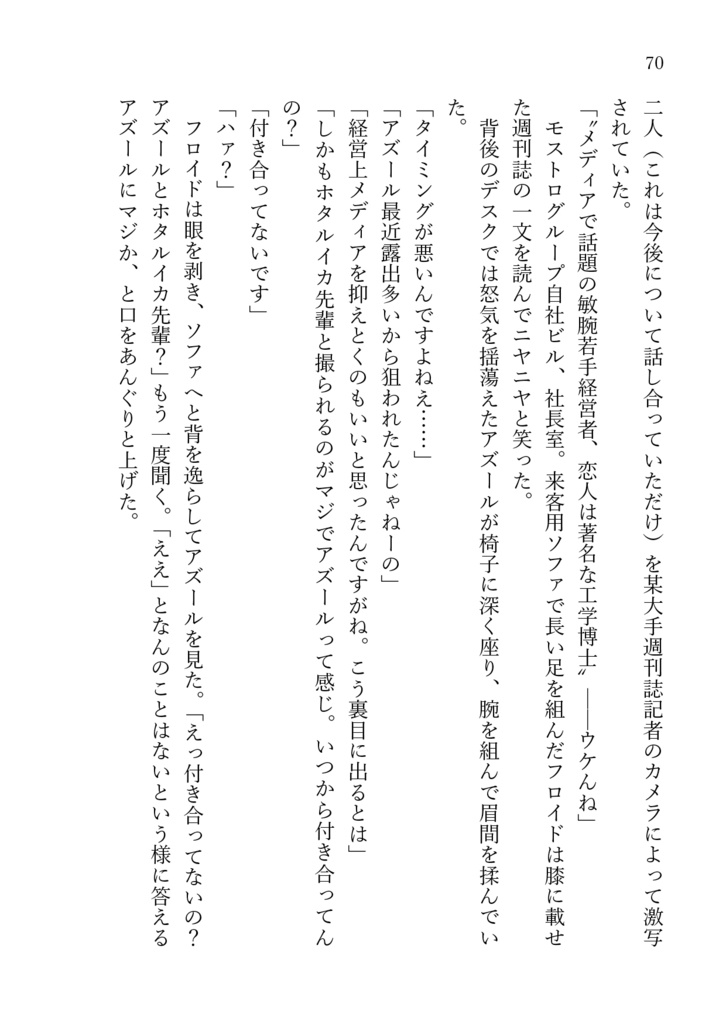 70
二人（これは今後について話し合っていただけ）を某大手週刊誌記者のカメラによって激写
されていた。
「〝メディアで話題の敏腕若手経営者、恋人は著名な工学博士〟――ウケんね」
　モストログループ自社ビル、社長室。来客用ソファで長い足を組んだフロイドは膝に載せ
た週刊誌の一文を読んでニヤニヤと笑った。
　背後のデスクでは怒気を揺蕩えたアズールが椅子に深く座り、腕を組んで眉間を揉んでい
た。
「タイミングが悪いんですよねえ……」
「アズール最近露出多いから狙われたんじゃねーの」
「経営上メディアを抑えとくのもいいと思ったんですがね。こう裏目に出るとは」
「しかもホタルイカ先輩と撮られるのがマジでアズールって感じ。いつから付き合ってん
の？」
「付き合ってないです」
「ハァ？」
　フロイドは眼を剥き、ソファへと背を逸らしてアズールを見た。「えっ付き合ってないの？
アズールとホタルイカ先輩？」もう一度聞く。「ええ」となんのことはないという様に答える
アズールにマジか、と口をあんぐりと上げた。